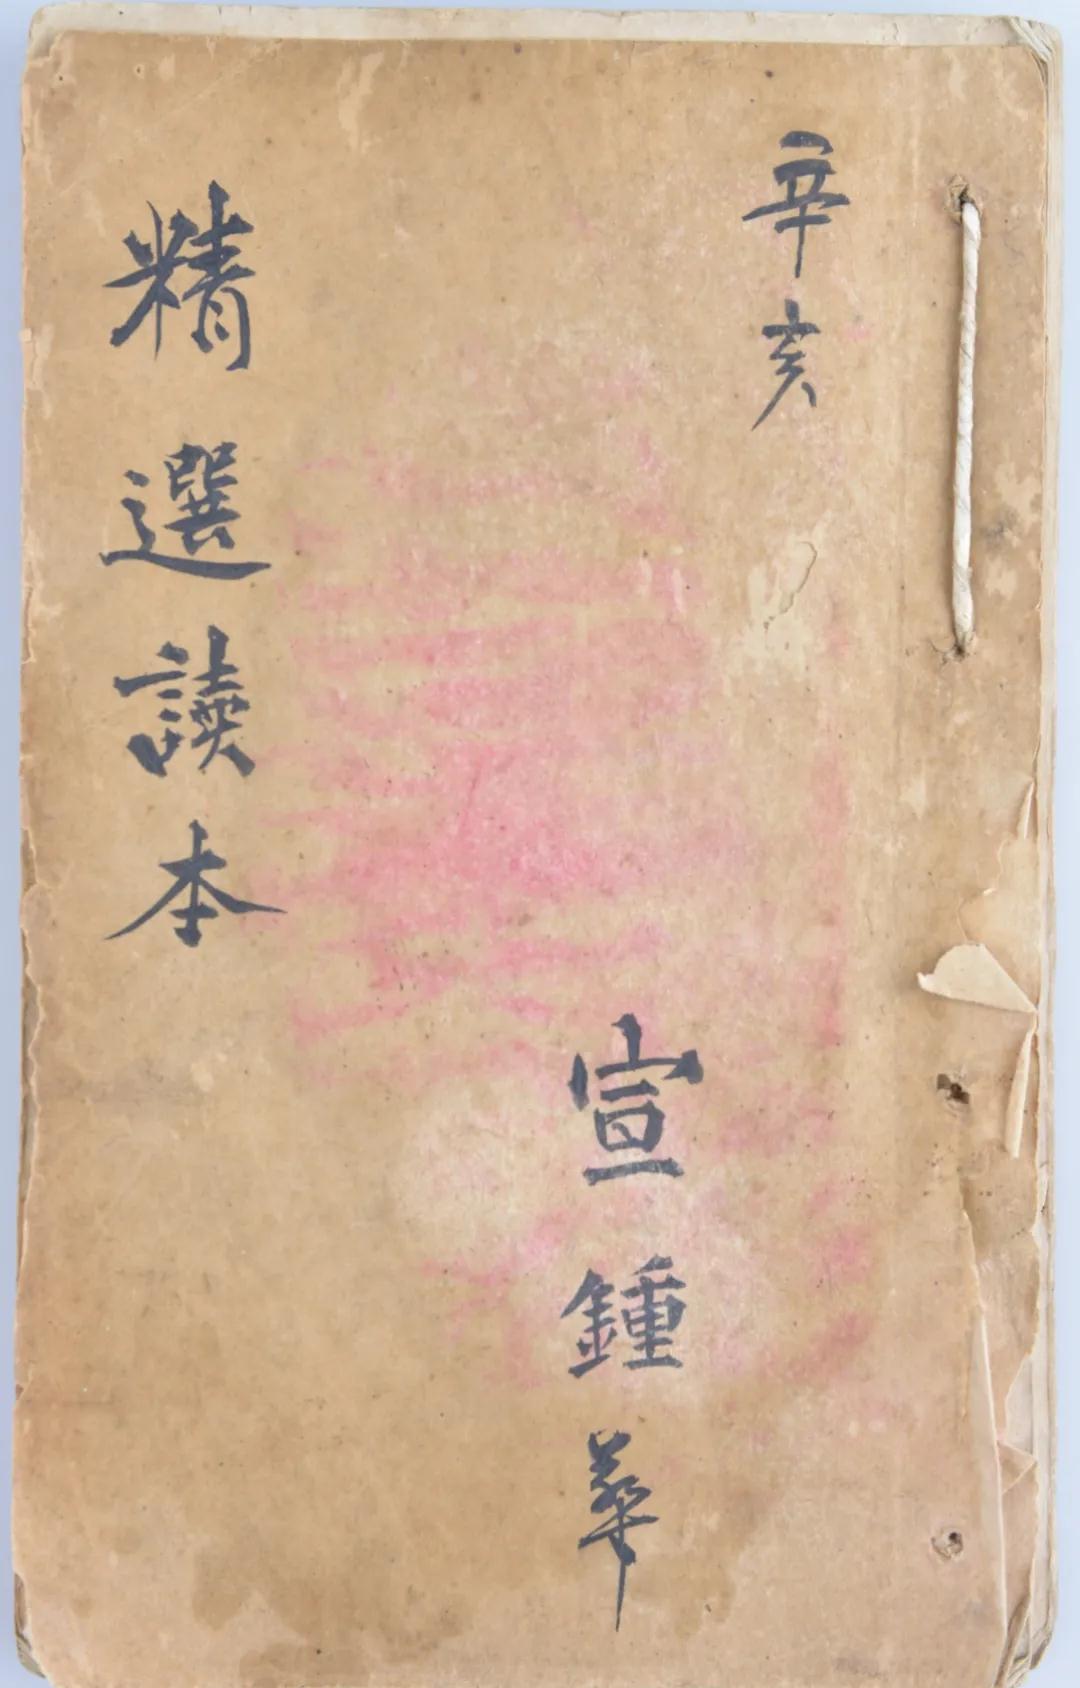 辛亥
宣鍾華
精選讀本